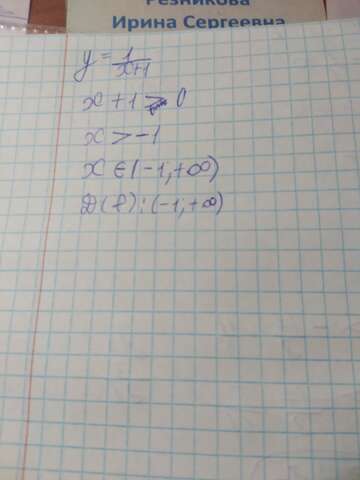 Резникова
Ирина Сергеевна
y = 1/x+1
x + 1 > 0
x > -1
x ∈ (-1, +∞)
D(f): (-1, +∞)